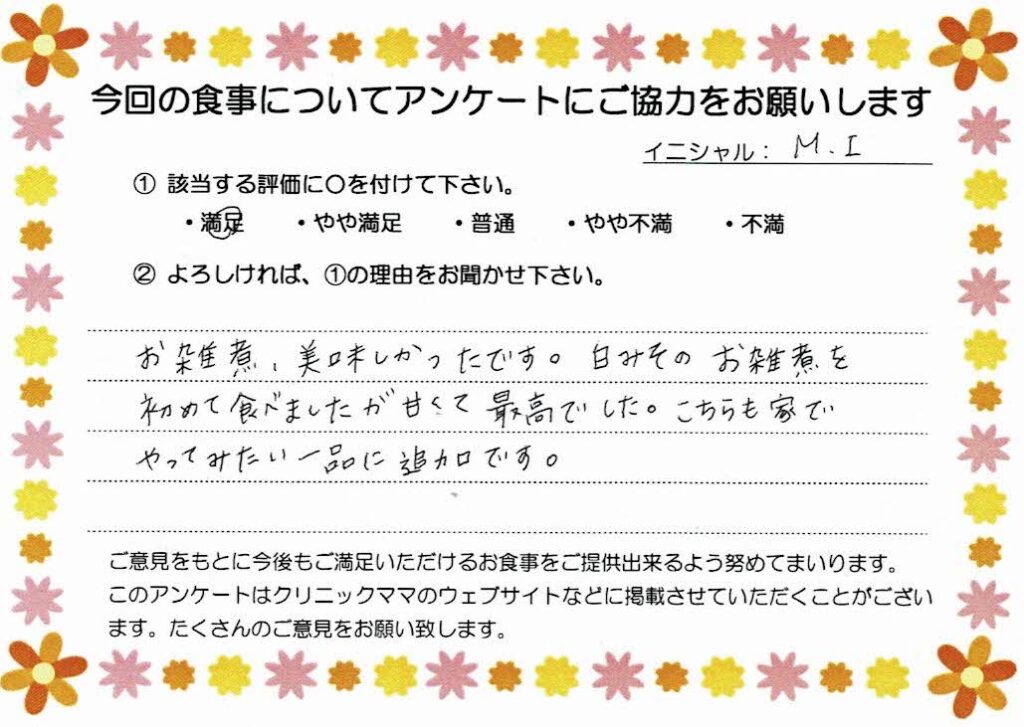 今回の食事についてアンケートにご協力をお願いします
イニシャル： M.I
① 該当する評価に〇を付けて下さい。
・満足 ・やや満足 ・普通 ・やや不満 ・不満
② よろしければ、①の理由をお聞かせ下さい。
お雑煮、美味しかったです。白みそのお雑煮を
初めて食べましたが甘くて最高でした。こちらも家で
やってみたい一品に追加です。
ご意見をもとに今後もご満足いただけるお食事をご提供出来るよう努めてまいります。
このアンケートはクリニックママのウェブサイトなどに掲載させていただくことがござい
ます。たくさんのご意見をお願い致します。